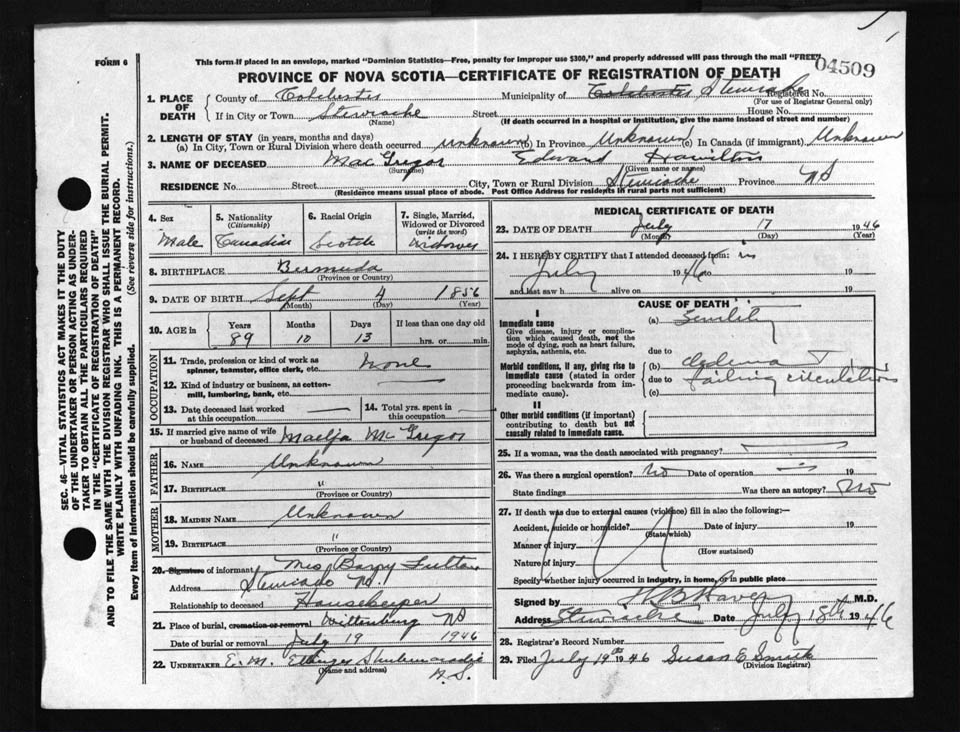 FORM 6
This form if placed in an envelope, marked "Dominion Statistics—Free, penalty for improper use $300," and properly addressed will pass through the mail "FREE"
04509
PROVINCE OF NOVA SCOTIA—CERTIFICATE OF REGISTRATION OF DEATH
1. PLACE OF DEATH
County of Colchester Municipality of Colchester Stewiacke Registered No.
(For use of Registrar General only)
If in City or Town Stewiacke Street House No.
(Name) (If death occurred in a hospital or institution, give the name instead of street and number)
2. LENGTH OF STAY (in years, months and days)
(a) In City, Town or Rural Division where death occurred unknown (b) In Province Unknown (c) In Canada (if immigrant) Unknown
3. NAME OF DECEASED MacGregor Edward Hamilton
(Surname) (Given name or names)
RESIDENCE No. Street City, Town or Rural Division Stewiacke Province NS
(Residence means usual place of abode. Post Office Address for residents in rural parts not sufficient)
4. Sex Male
5. Nationality (Citizenship) Canadian
6. Racial Origin Scotch
7. Single, Married, Widowed or Divorced (write the word) Widower
8. BIRTHPLACE Bermuda
(Province or Country)
9. DATE OF BIRTH Sept 4 1856
(Month) (Day) (Year)
10. AGE in Years 89 Months 10 Days 13 If less than one day old hrs. or min.
OCCUPATION
11. Trade, profession or kind of work as spinner, teamster, office clerk, etc. None
12. Kind of industry or business, as cotton-mill, lumbering, bank, etc.
13. Date deceased last worked at this occupation
14. Total yrs. spent in this occupation
15. If married give name of wife or husband of deceased McGregor
FATHER
16. NAME Unknown
17. BIRTHPLACE "
(Province or Country)
MOTHER
18. MAIDEN NAME Unknown
19. BIRTHPLACE "
(Province or Country)
20. Signature of informant Mrs Barry Fulton
Address Stewiacke NS.
Relationship to deceased Housekeeper
21. Place of burial, cremation or removal Wittenburg NS
Date of burial or removal July 19 1946
22. UNDERTAKER E. M. Ettinger Shubenacadie
(Name and address) N.S.
MEDICAL CERTIFICATE OF DEATH
23. DATE OF DEATH July 17 1946
(Month) (Day) (Year)
24. I HEREBY CERTIFY that I attended deceased from: in
July 1946 to 19
and last saw h alive on 19
CAUSE OF DEATH
I
Immediate cause
Give disease, injury or complication which caused death, not the mode of dying, such as heart failure, asphyxia, asthenia, etc.
(a) Senility
due to
Morbid conditions, if any, giving rise to immediate cause (stated in order proceeding backwards from immediate cause).
(b) Oedema
due to failing circulation
(c)
II
Other morbid conditions (if important) contributing to death but not causally related to immediate cause.
25. If a woman, was the death associated with pregnancy?
26. Was there a surgical operation? No Date of operation 19
State findings Was there an autopsy? No
27. If death was due to external causes (violence) fill in also the following:—
Accident, suicide or homicide? Date of injury 19
(State which)
Manner of injury
(How sustained)
Nature of injury
Specify whether injury occurred in industry, in home, or in public place
Signed by M.D.
Address Stewiacke Date July 18th 1946
28. Registrar's Record Number
29. Filed July 19th 1946 Susan E Smith
(Division Registrar)
SEC. 46—VITAL STATISTICS ACT MAKES IT THE DUTY
OF THE UNDERTAKER OR PERSON ACTING AS UNDER-
TAKER TO OBTAIN ALL THE PARTICULARS REQUIRED
IN THE "CERTIFICATE OF REGISTRATION OF DEATH"
AND TO FILE THE SAME WITH THE DIVISION REGISTRAR WHO SHALL ISSUE THE BURIAL PERMIT.
WRITE PLAINLY WITH UNFADING INK. THIS IS A PERMANENT RECORD.
Every item of information should be carefully supplied. (See reverse side for instructions.)